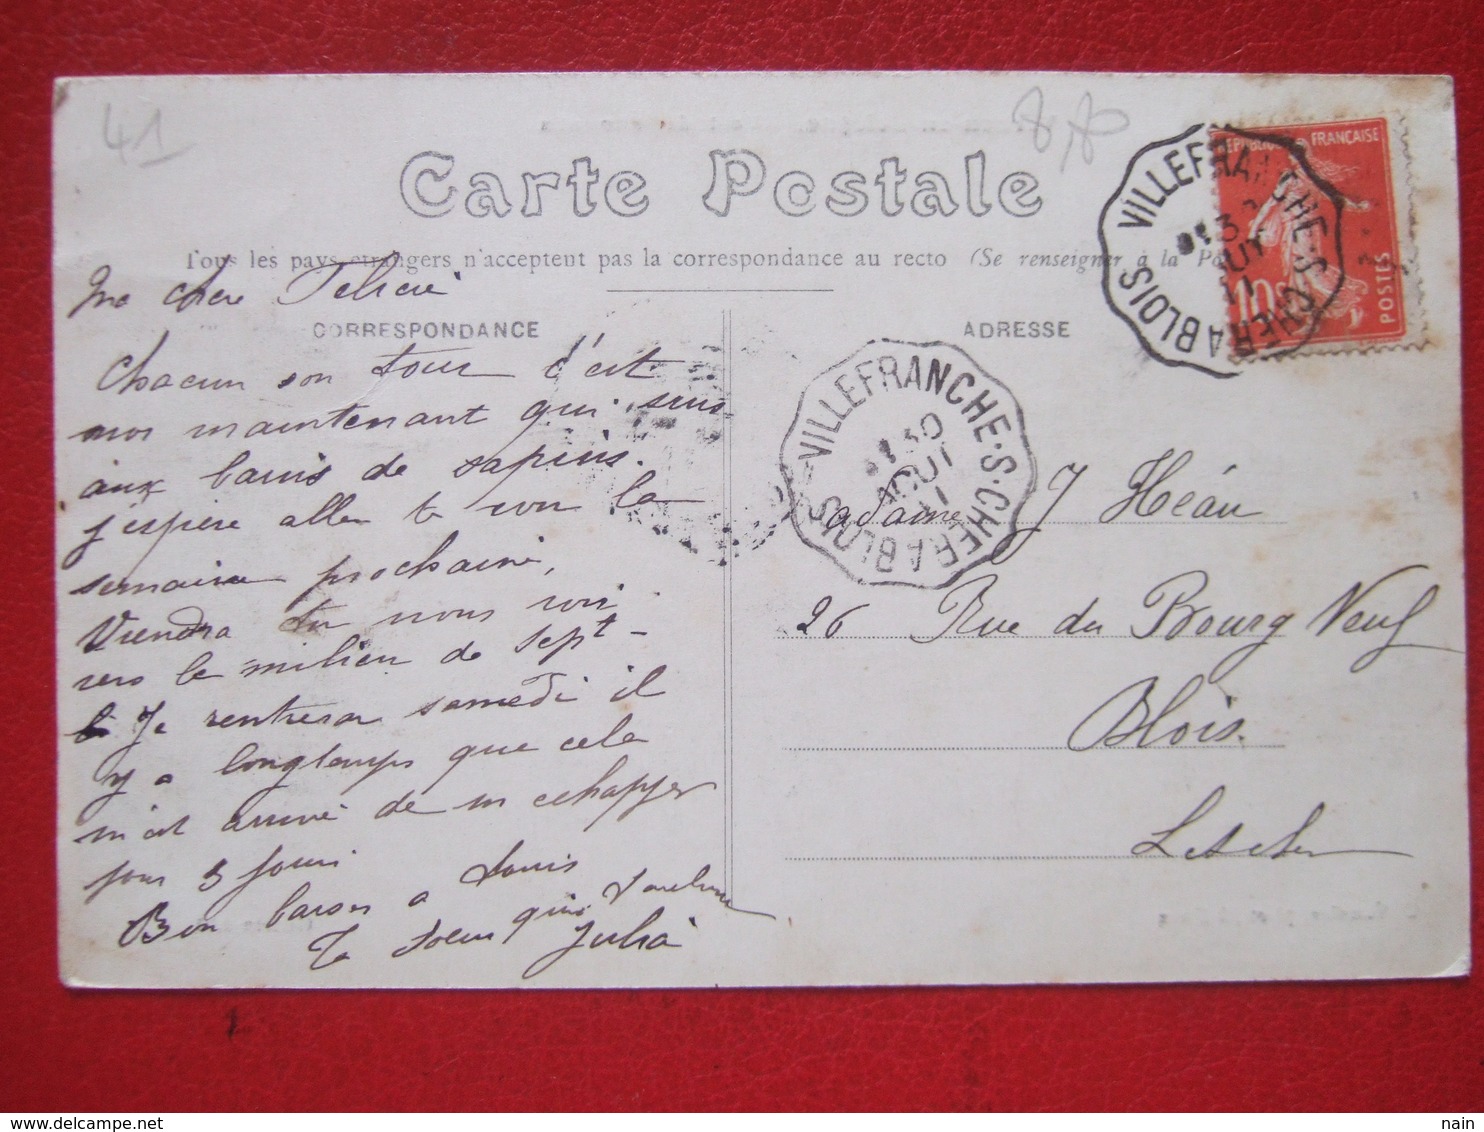 41
Carte Postale
Tous les pays étrangers n'acceptent pas la correspondance au recto (Se renseigner à la Po
CORRESPONDANCE
ADRESSE
REPUBLIQUE FRANÇAISE
10
POSTES
VILLEFRANCHE-S-CHER A BLOIS
VILLEFRANCHE-S-CHER A BLOIS
30
AOUT
11
Ma chere Felicie
Chacun son tour c'est
nos maintenant qui
aux bains de sapins.
j'espere aller te voir la
semaine prochaine,
Viendra tu nous voir
vers le milieu de Sept
Je rentrerai samedi il
y a longtemps que cela
m'est arrivé de m echapper
pour 3 jours
Bon baiser a Louis
Ta soeur qui
Julia
adame J Héau
26 Rue du Bourg Neuf
Blois.
L et cher